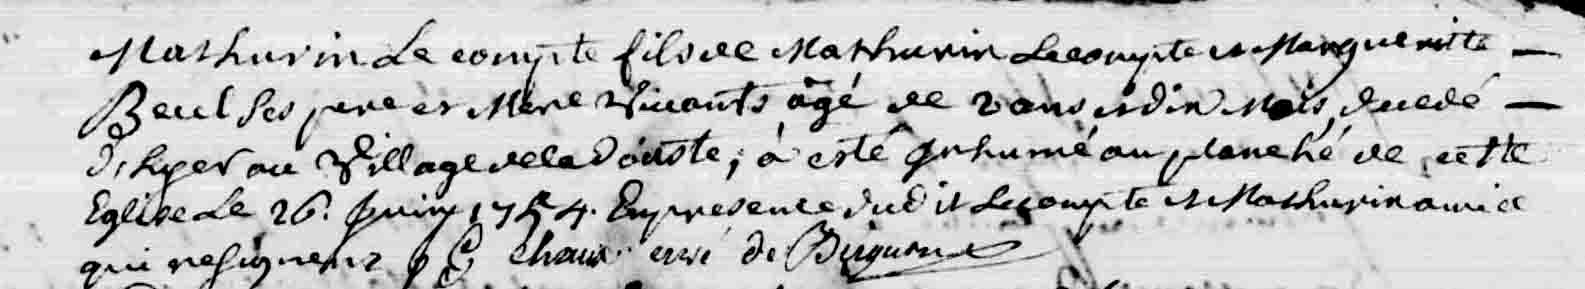 Mathurin Le compte fils de Mathurin Lecompte et Margueritte —
Becel ses pere et Mere Vivants âgé de 2 ans et dix Mois, decedé —
d'hyer au Village de la d'ouste, à esté Inhumé au planché de cette
Eglise Le 26. Juin 1754. En presence dudit Lecompte et Mathurin
qui ne signent